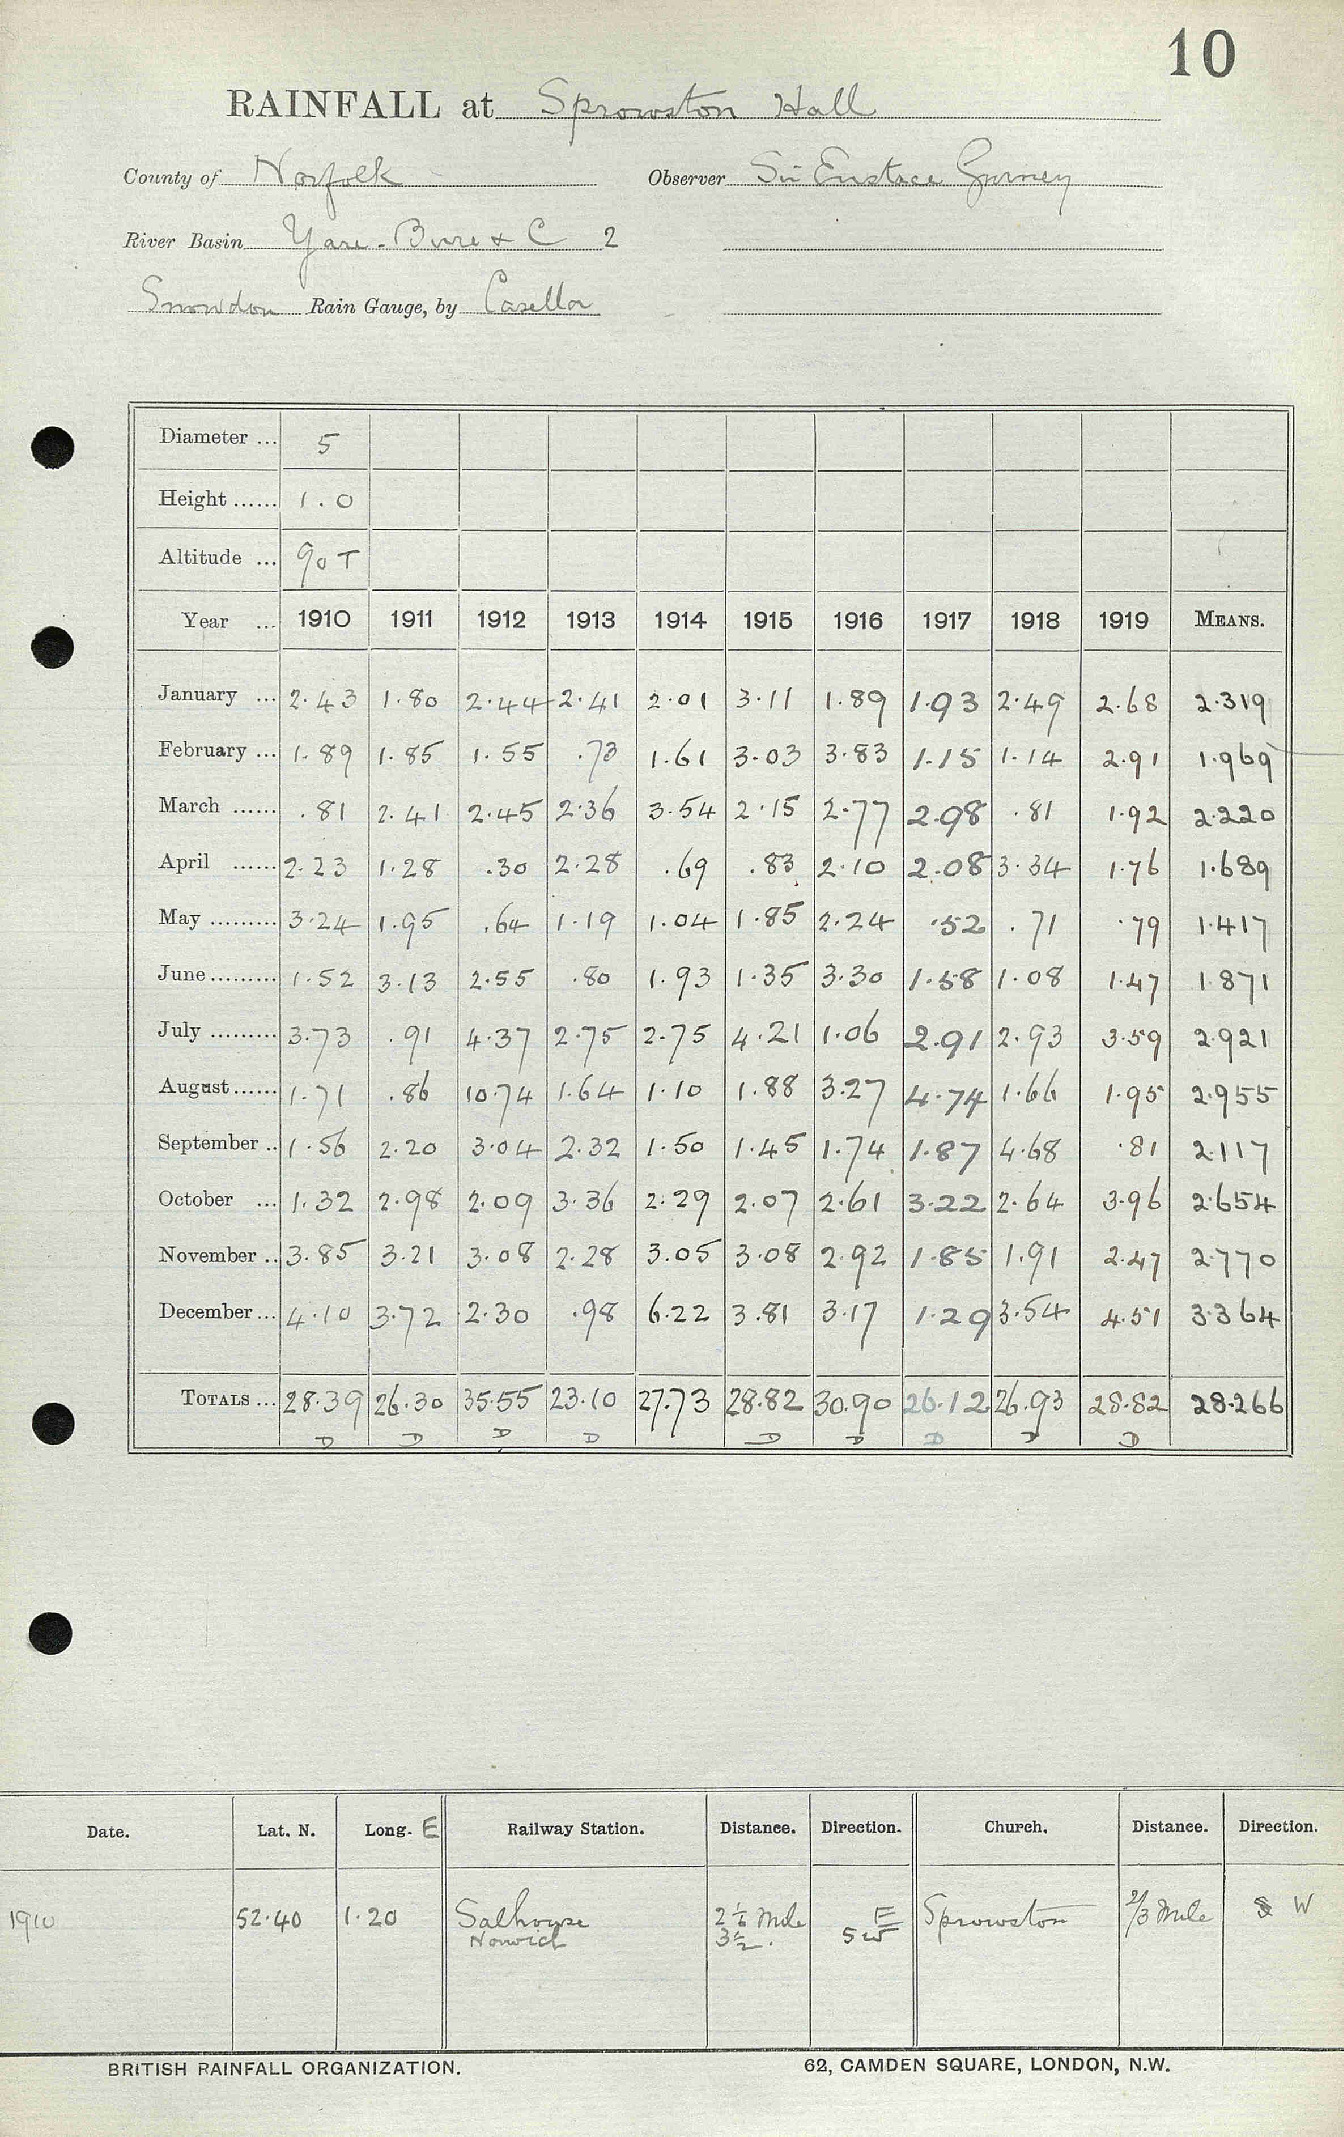 10
RAINFALL at Sprowston Hall
County of Norfolk Observer Sir Eustace Gurney
River Basin Yare - Bure & C 2
Snowdon Rain Gauge, by Casella
Diameter ... 5
Height ...... 1.0
Altitude ... 90 T
Year ... 1910 1911 1912 1913 1914 1915 1916 1917 1918 1919 MEANS.
January ... 2.43 1.80 2.44 2.41 2.01 3.11 1.89 1.93 2.49 2.68 2.319
February ... 1.89 1.85 1.55 .73 1.61 3.03 3.83 1.15 1.14 2.91 1.969
March ...... .81 2.41 2.45 2.36 3.54 2.15 2.77 2.98 .81 1.92 2.220
April ...... 2.23 1.28 .30 2.28 .69 .83 2.10 2.08 3.34 1.76 1.689
May ......... 3.24 1.95 .64 1.19 1.04 1.85 2.24 .52 .71 .79 1.417
June ......... 1.52 3.13 2.55 .80 1.93 1.35 3.30 1.58 1.08 1.47 1.871
July ......... 3.73 .91 4.37 2.75 2.75 4.21 1.06 2.91 2.93 3.59 2.921
August ...... 1.71 .86 10.74 1.64 1.10 1.88 3.27 4.74 1.66 1.95 2.955
September .. 1.56 2.20 3.04 2.32 1.50 1.45 1.74 1.87 4.68 .81 2.117
October ... 1.32 2.98 2.09 3.36 2.29 2.07 2.61 3.22 2.64 3.96 2.654
November .. 3.85 3.21 3.08 2.28 3.05 3.08 2.92 1.85 1.91 2.47 2.770
December ... 4.10 3.72 2.30 .98 6.22 3.81 3.17 1.29 3.54 4.51 3.364
TOTALS ... 28.39 26.30 35.55 23.10 27.73 28.82 30.90 26.12 26.93 28.82 28.266
D D D D D D D D D
Date. Lat. N. Long. E Railway Station. Distance. Direction. Church. Distance. Direction.
1910 52.40 1.20 Salhouse Mile E Sprowston 2/3 Mile W
Norwich 3½ SW
BRITISH RAINFALL ORGANIZATION. 62, CAMDEN SQUARE, LONDON, N.W.